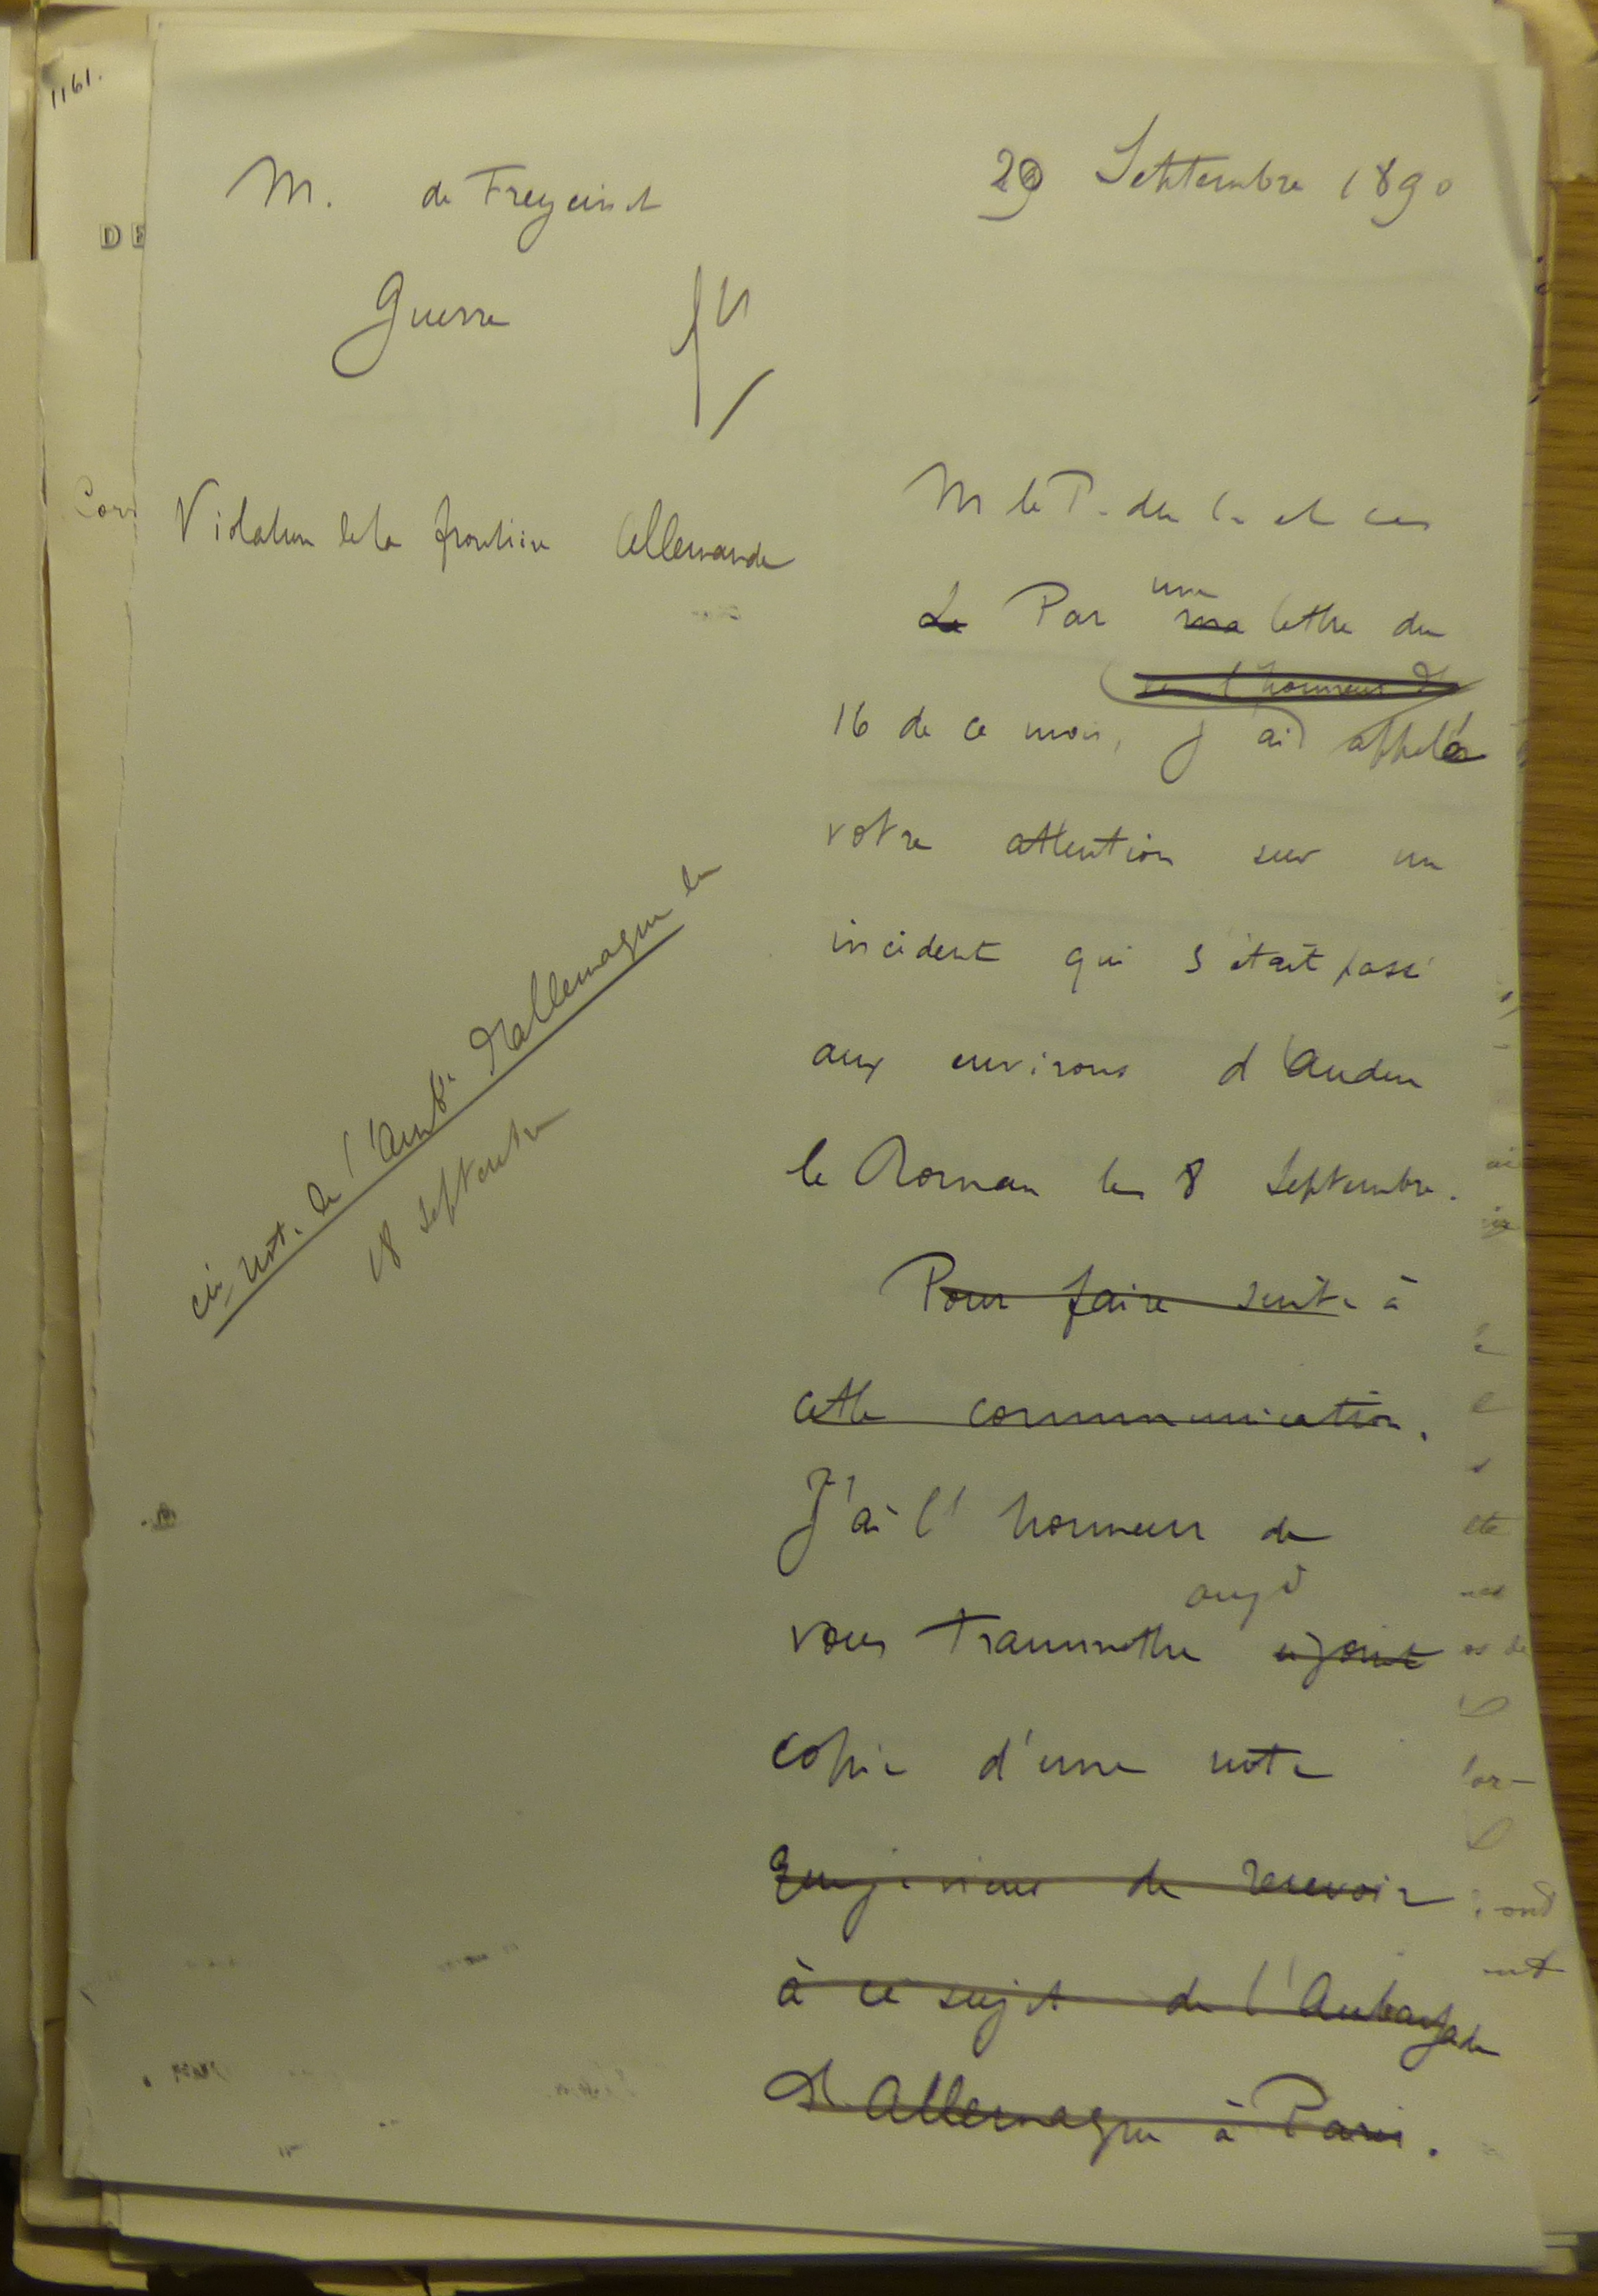 1161.
DE
29 Septembre 1890
M. de Freycinet
Guerre
Violation de la frontière Allemande
Corr
M le P. du C. et cer
Le Par une ma lettre du
l'honneur d'
16 de ce mois, j'ai appelé
votre attention sur un
incident qui s'était passé
aux environs d'Audun
le Roman le 8 Septembre.
Pour faire suite à
cette communication,
J'ai l'honneur de
auj d
vous transmettre ci joint
copie d'une note
que je viens de recevoir
à ce sujet de l'Ambassade
d'Allemagne à Paris.
cij note de l'Ambde d'Allemagne du
18 septembre